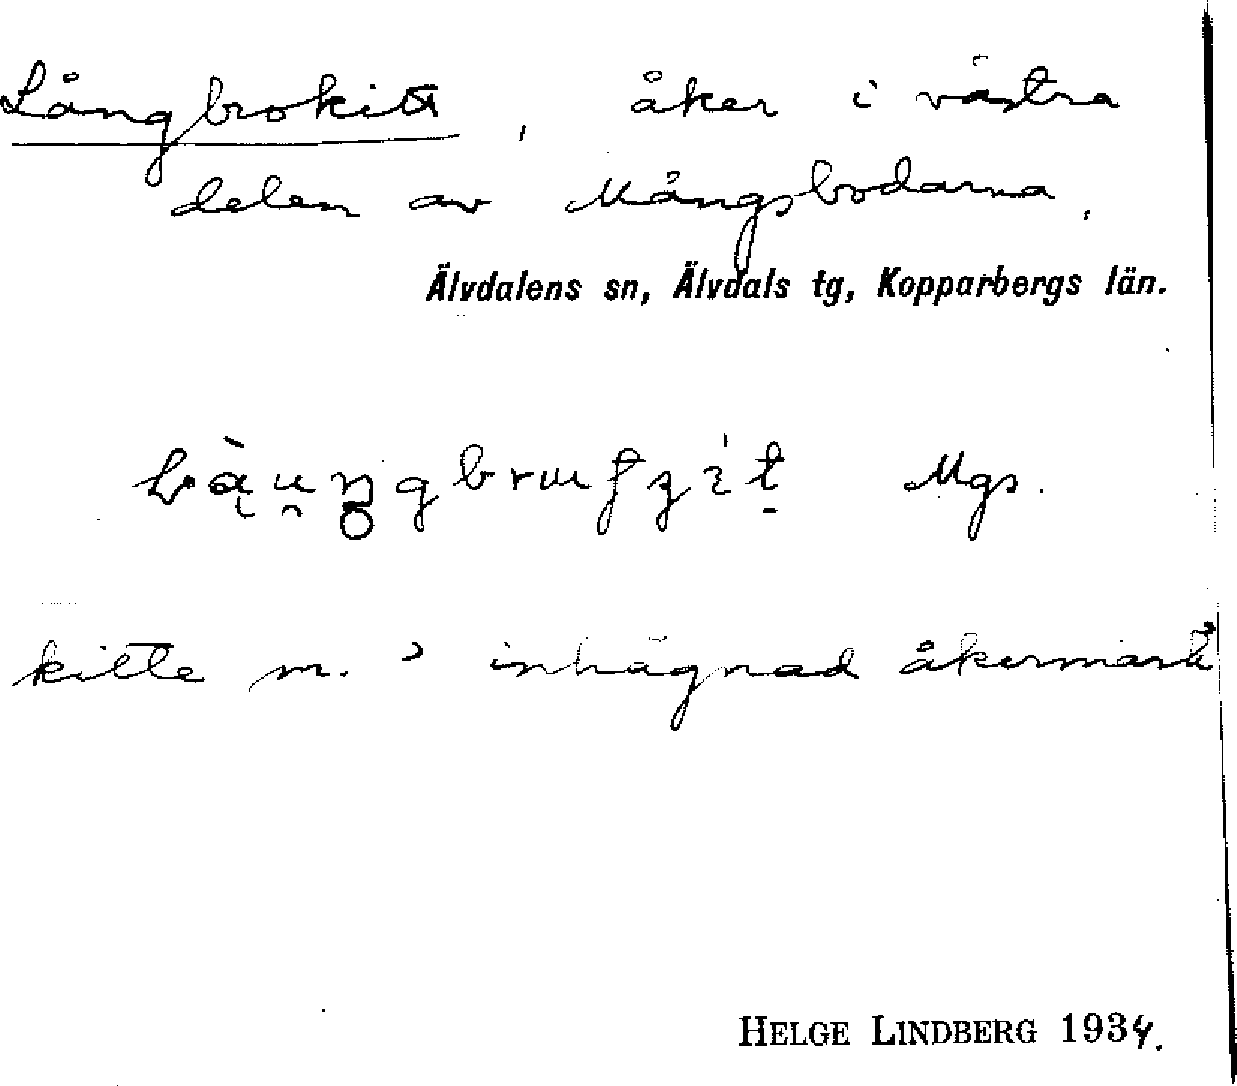 Långbrokitt, åker i västra
delen av Mångsbodarna,
Älvdalens sn, Älvdals tg, Kopparbergs län.
Mgs.
kitte m. ' inhägnad åkermark'
HELGE LINDBERG 1934.